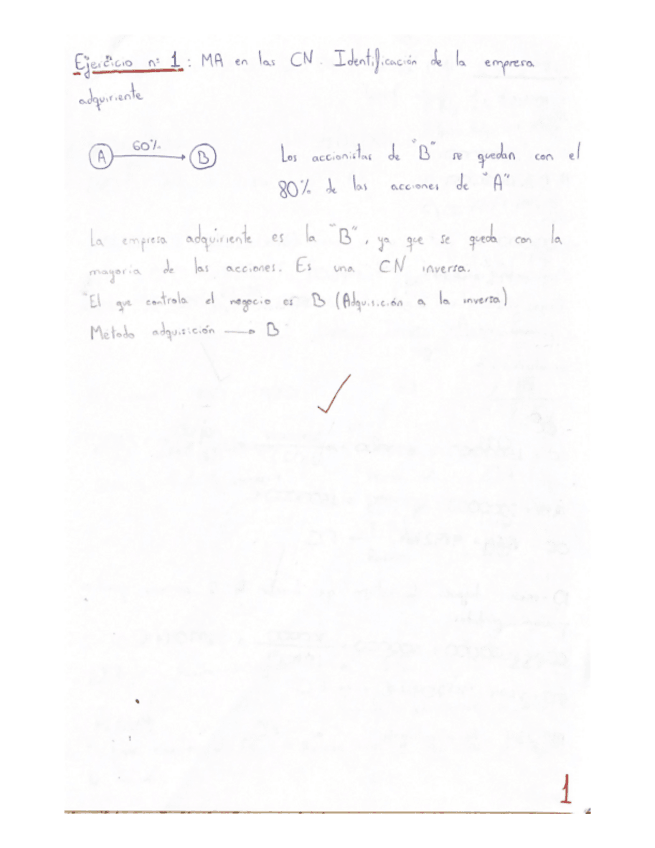 Ejercicio nº 1: MA en las CN. Identificación de la empresa
adquiriente
A 60% B
Los accionistas de "B" se quedan con el
80% de las acciones de "A"
La empresa adquiriente es la "B", ya que se queda con la
mayoria de las acciones. Es una CN inversa.
"El que controla el negocio es B (Adquisición a la inversa)
Metodo adquisición → B
1